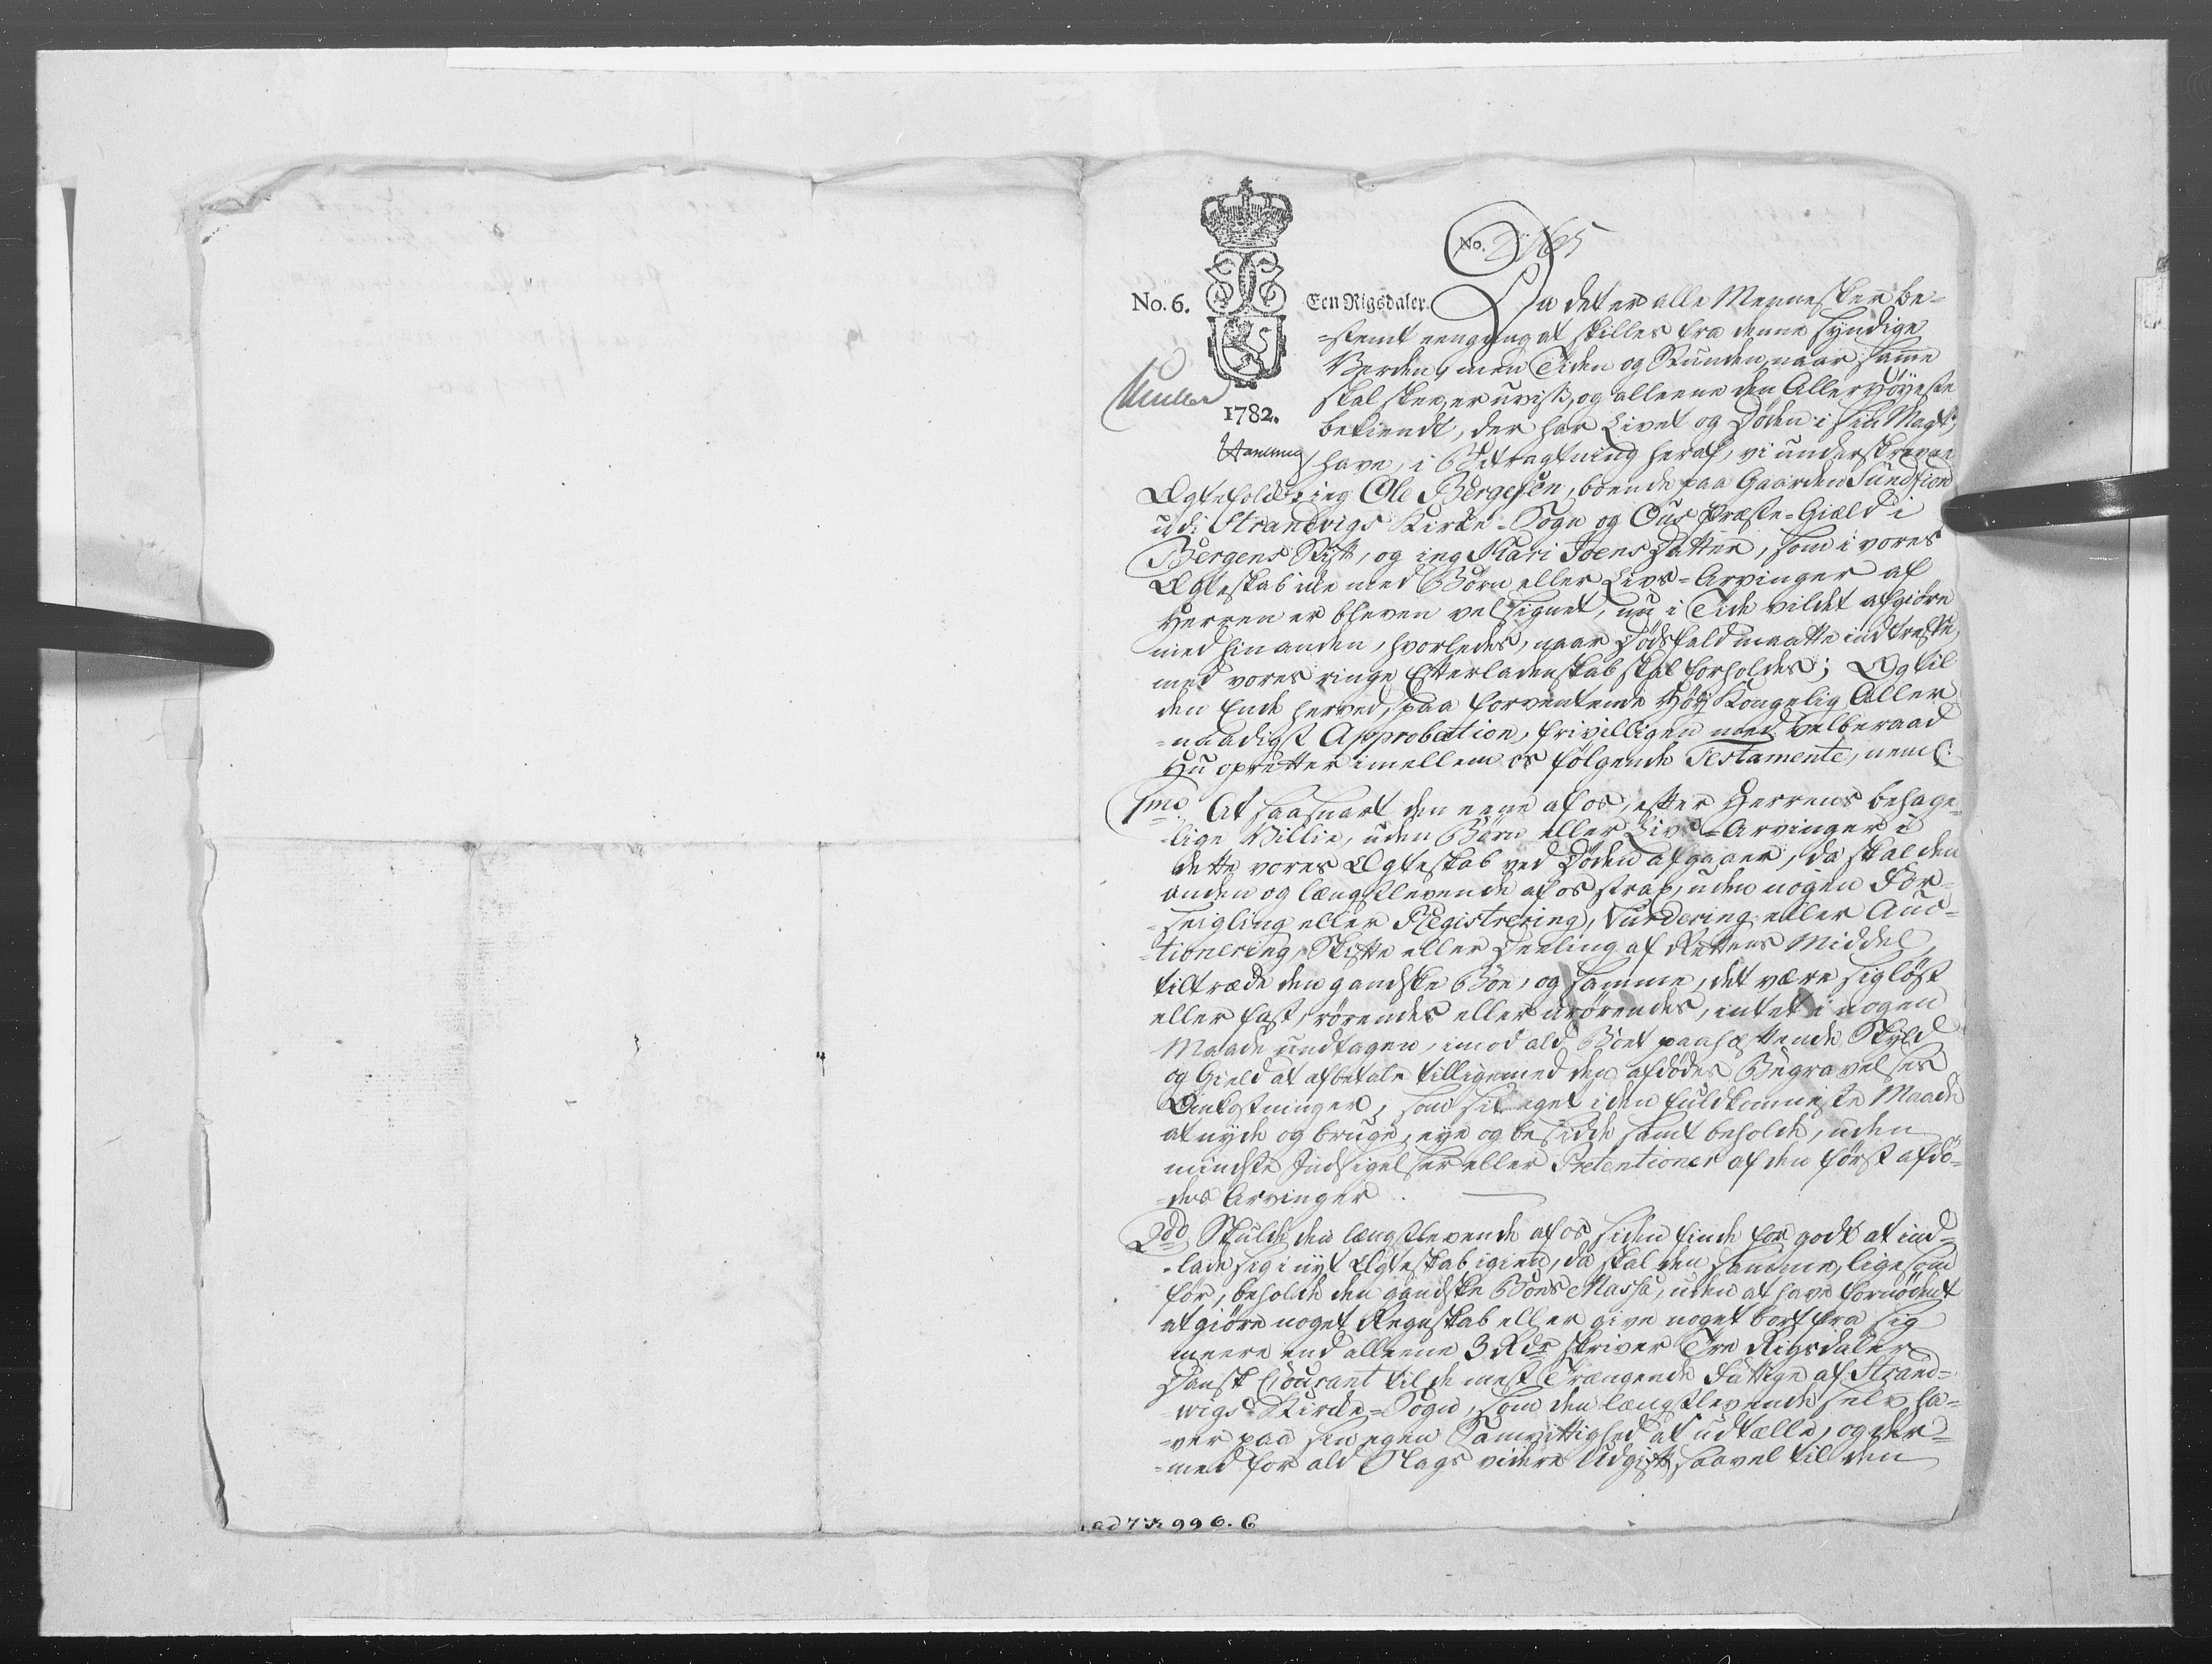 No. 2365
No. 6.
Een Rigsdaler.
1782.
Da det er alle Mennesker be-
-stemt eengang at skilles fra denne syndige
Verden, men Tiden og Stunden, naar samme
skal skee, er uvist, og alleene den Allerhöyeste
bekiendt, der har Livet og Döden i sin Magt;
have, i Betragtning heraf, vi underskrevne
Ægtefolk: ieg Ole Bergesen, boende paa Gaarden Sundfiord
udi Strandvigs Kirke-Sogn og Ous Præste-Gield i
Bergens Stift, og ieg Kari Joens Datter, som i vores
Ægteskab icke med Börn eller Livs-Arvinger af
Herren er bleven velsignet, nu i Tide vildet afgiöre
med hinanden, hvorledes, naar Dödsfald maatte indtreffe,
med vores ringe Efterladenskab skal forholdes; Og til
den Ende herved, paa forventende Höy Kongelig Aller-
-naadigst Approbation, frivilligen med velberaad
Hu opretter imellem os fölgende Testamente, neml:
1mo. At saasnart den eene af os, efter Herrens behage-
-lige Villie, uden Börn eller Livs-Arvinger i
dette vores Ægteskab ved Döden afgaaer, da skal den
anden og længstlevende af os strax, uden nogen For-
-seigling eller Registrering, Vurdering eller Auc-
-tionering, Skifte eller Deeling af Rettens Middel,
tiltræde den gandske Boe, og samme, det være sig löst
eller fast, rörendes eller urörendes, intet i nogen
Maade undtagen, imod ald Boet paahæftende Skyld
og Gield at afbetale tilligemed den afdödes Begravelses
Omkostninger, som sit eget i den fuldkomneste Maade
at nyde og bruge, eye og besidde samt beholde, uden
mindste Indsigelser eller Pretentioner af den först afdö-
-des Arvinger.
2do Skulde den længstlevende af os siden finde for godt at ind-
-lade sig i nyt Ægteskab igien, da skal den samme, ligesom
för, beholde den gandske Boes Massa, uden at have fornödent
at giöre noget Regnskab eller give noget bort fra sig
meere end alleene 3 Rdr skriver Tre Rigsdaler
Dansk Courant til de mest Trængende Fattige af Strand-
-wigs Kirke-Sogn, som den længstlevende selv ha-
-ver paa sin egen Samvittighed at udtælle, og der-
-med for ald Slags videre Udgift, saavel til den
ad 7 K 996. C